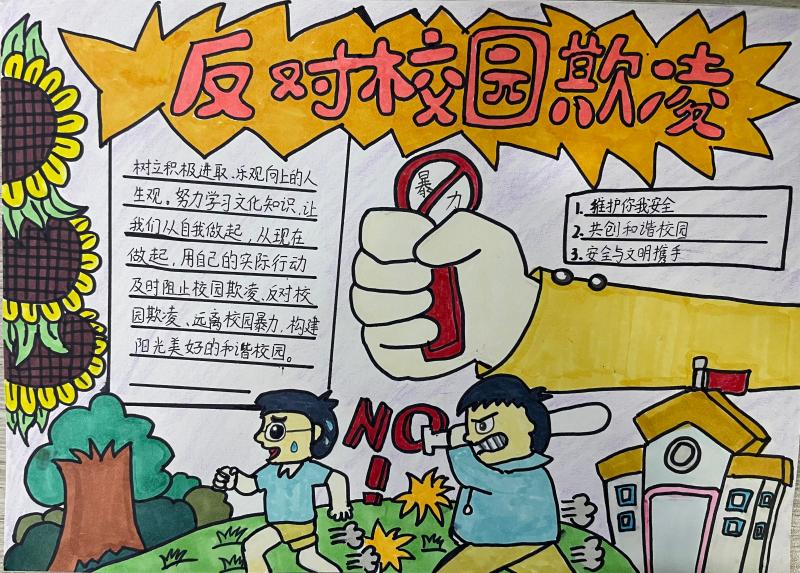 反对校园欺凌
树立积极进取、乐观向上的人
生观。努力学习文化知识、让
我们从自我做起，从现在
做起，用自己的实际行动
及时阻止校园欺凌、反对校
园欺凌、远离校园暴力，构建
阳光美好的和谐校园。
暴力
1. 维护你我安全
2. 共创和谐校园
3. 安全与文明携手
NO!